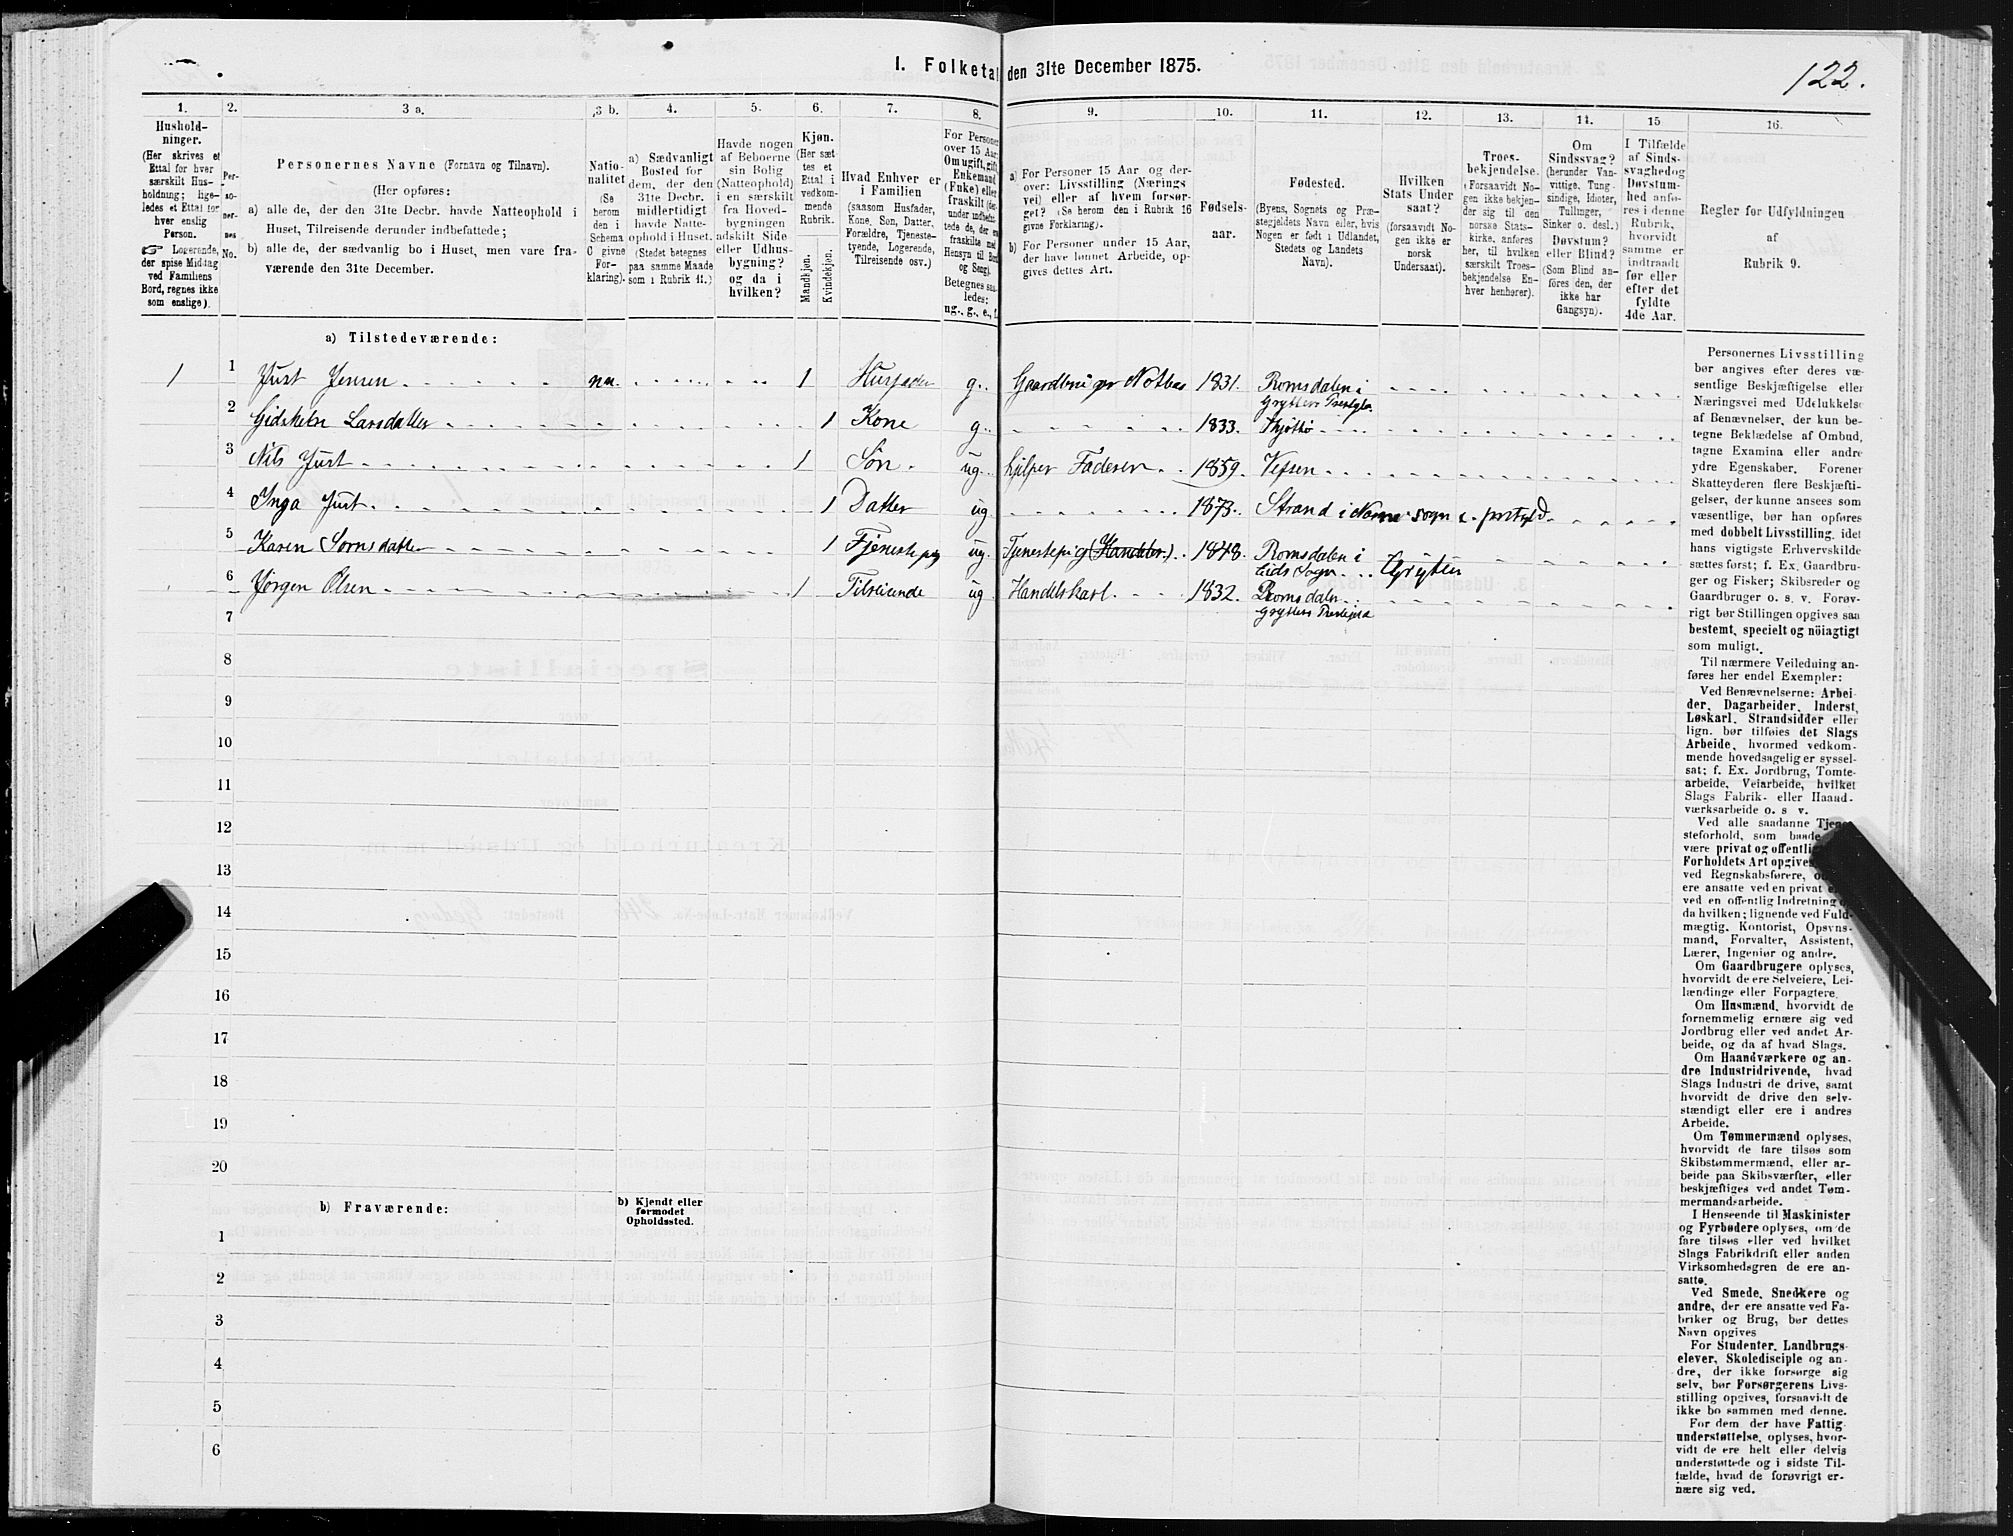 122.
I. Folketal den 31te December 1875.
1. 2. 3 a. 3 b. 4. 5. 6. 7. 8. 9. 10. 11. 12. 13. 14. 15 16.
Hushold-
ninger.
(Her skrives et
Ettal for hver
særskilt Hus-
holdning; lige-
ledes et Ettal for
hver enslig
Person.
☞ Logerende,
der spise Middag
ved Familiens
Bord, regnes ikke
som enslige).
Per-
so-
ner-
nes
No.
Personernes Navne (Fornavn og Tilnavn).
(Her opføres:
a) alle de, der den 31te Decbr. havde Natteophold i
Huset, Tilreisende derunder indbefattede;
b) alle de, der sædvanlig bo i Huset, men vare fra-
værende den 31te December.
Natio-
nalitet
(Se
herom
den i
Schema
O givne
For-
klaring).
a) Sædvanligt
Bosted for
dem, der den
31te Decbr.
midlertidigt
havde Natte-
ophold i Huset.
(Stedet betegnes
paa samme Maade
som i Rubrik 11.)
Havde nogen
af Beboerne
sin Bolig
(Natteophold)
i en særskilt
fra Hoved-
bygningen
adskilt Side
eller Udhus-
bygning?
og da i
hvilken?
Kjøn.
(Her sæt-
tes et
Ettal i
vedkom-
mende
Rubrik.
Mandkjøn.
Kvindekjøn.
Hvad Enhver er
i Familien
(saasom Husfader,
Kone, Søn, Datter,
Forældre, Tjeneste-
tyende, Logerende,
Tilreisende osv.)
For Personer
over 15 Aar:
Om ugift, gift,
Enkemand
(Enke) eller
fraskilt
Betegnes saa-
ledes:
ng., g., e., f.
a) For Personer 15 Aar og der-
over: Livsstilling (Nærings
vei) eller af hvem forsør-
get? (Se herom den i Rubrik 16
givne Forklaring).
b) For Personer under 15 Aar,
der have lønnet Arbeide, op-
gives dettes Art.
Fødsels-
aar.
Fødested.
(Byens, Sognets og Præ-
stegjeldets Navn eller, hvis
Nogen er født i Udlandet,
Stedets og Landets
Navn).
Hvilken
Stats Under
saat?
(forsaavidt No-
gen ikke er
norsk
Undersaat).
Troes-
bekjendelse.
(Forsaavidt No-
gen ikke bekjen-
der sig til den
norske Stats-
kirke, anføres
her, til hvilken
særskilt Troes-
bekjendelse En-
hver henhører).
Om
Sindssvag?
(herunder Van-
vittige, Tung-
sindige, Idioter,
Tullinger,
Sinker o. desl.)
Døvstum?
eller Blind?
(Som Blind an-
føres den, der
ikke har
Gangsyn).
I Tilfælde
af Sinds-
svaghed og
Døvstum-
hed anfø-
res i denne
Rubrik,
hvorvidt
samme er
indtraadt
før eller
efter det
fyldte
4de Aar.
Regler for Udfyldningen
af
Rubrik 9.
a) Tilstedeværende:
1 1 Just Jensen nn. 1 Husfader g. Gaardbruger Notbas 1831. Romsdalen i
Gryttens Prestgjeld.
2 Gidsken Larsdatter 1 Kone g. 1833. Thjøttø
3 Nils Just 1 Søn. ug. hjelper Faderen 1859. Vefsen
4 Inga Just 1 Datter ug 1873. Strand i Sogn
5 Karen Sørnsdatter 1 Tjenestepige ug. Tjenestepig (Handler.) 1848. Romsdalen i
Eids Sogn Grytten
6 Jørgen Olsen 1 Tilreisende ug Handelskarl. 1832. Romsdalen
Gryttens Prestegjeld
7
8
9
10
11
12
13
14
15
16
17
18
19
20
b) Fraværende:
b) Kjendt eller
formodet
Opholdssted.
1
2
3
4
5
6
Personernes Livsstilling
bør angives efter deres væ-
sentlige Beskjæftigelse eller
Næringsvei med Udelukkelse
af Benævnelser, der kun be-
tegne Beklædelse af Ombud,
tagne Examina eller andre
ydre Egenskaber. Forener
Skatteyderen flere Beskjæfti-
gelser, der kunne ansees som
væsentlige, bør han opføres
med dobbelt Livsstilling, idet
hans vigtigste Erhvervskilde
sættes først; f. Ex. Gaardbru-
ger og Fisker; Skibsreder og
Gaardbruger o. s. v. Forøv-
rigt bør Stillingen opgives saa
bestemt, specielt og nöiagtigt
som muligt.
Til nærmere Veiledning an-
føres her endel Exempler:
Ved Benævnelserne: Arbei-
der, Dagarbeider, Inderst,
Løskarl, Strandsidder eller
lign. bør tilføies det Slags
Arbeide, hvormed vedkom-
mende hovedsagelig er syssel-
sat; f. Ex. Jordbrug, Tomte-
arbeide, Veiarbeide, hvilket
Slags Fabrik- eller Haand-
værksarbeide o. s. v.
Ved alle saadanne Tjene-
steforhold, som baade
være privat og offentlig
Forholdets Art opgives
ved Regnskabsførere,
ere ansatte ved en privat
ved en offentlig Indretning
da hvilken; lignende ved Fuld-
mægtig, Kontorist, Opsyns-
mand, Forvalter, Assistent,
Lærer, Ingeniør og andre.
Om Gaardbrugere oplyses,
hvorvidt de ere Selveiere, Lei-
lændinge eller Forpagtere.
Om Husmænd, hvorvidt de
fornemmelig ernære sig ved
Jordbrug eller ved andet Ar-
beide, og da af hvad Slags.
Om Haandværkere og an-
dre Industridrivende, hvad
Slags Industri de drive, samt
hvorvidt de drive den selv-
stændigt eller ere i andres
Arbeide.
Om Tømmermænd oplyses,
hvorvidt de fare tilsøs som
Skibstømmermænd, eller ar-
beide paa Skibsværfter, eller
beskjæftiges ved andet Tøm-
mermandsarbeide.
I Henseende til Maskinister
og Fyrbødere oplyses, om de
fare tilsøs eller ved hvilket
Slags Fabrikdrift eller anden
Virksomhedsgren de ere an-
satte.
Ved Smede, Snedkere og
andre, der ere ansatte ved Fa-
briker og Brug, bør dettes
Navn opgives
For Studenter, Landbrugs-
elever, Skoledisciple og an-
dre, der ikke forsørge sig
selv, bør Forsørgerens Livs-
stilling opgives, forsaavidt de
ikke bo sammen med denne.
For dem der have Fattig
understøttelse, oplyses, hvor-
vidt de ere helt eller delvis
understøttede og i sidste Til-
fælde, hvad de forøvrigt er-
nære sig ved.